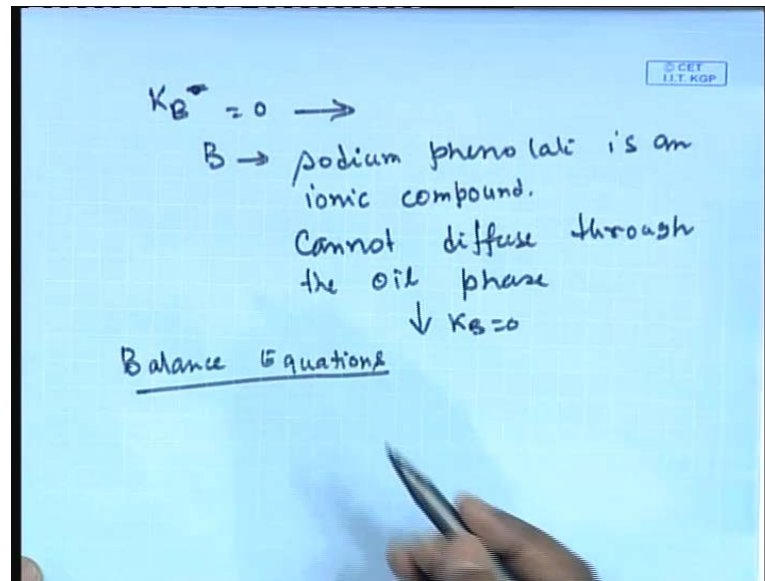 © CET
I.I.T. KGP
K_B = 0 →
B → sodium phenolate is an
ionic compound.
Cannot diffuse through
the oil phase
↓ K_B = 0
Balance Equations